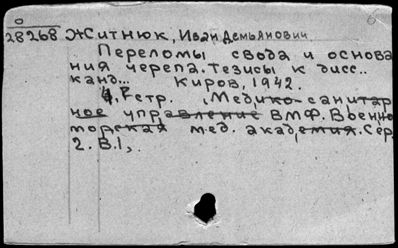 о
28268 Житнюк, Иван Демьянович
Переломы свода и основа
ния черепа. Тезисы к дисс..
канд... Киров, 1942.
стр. Медико-санитар
ное управление ВМФ. Военно
морская мед. академия. Сер
2. В. 1,